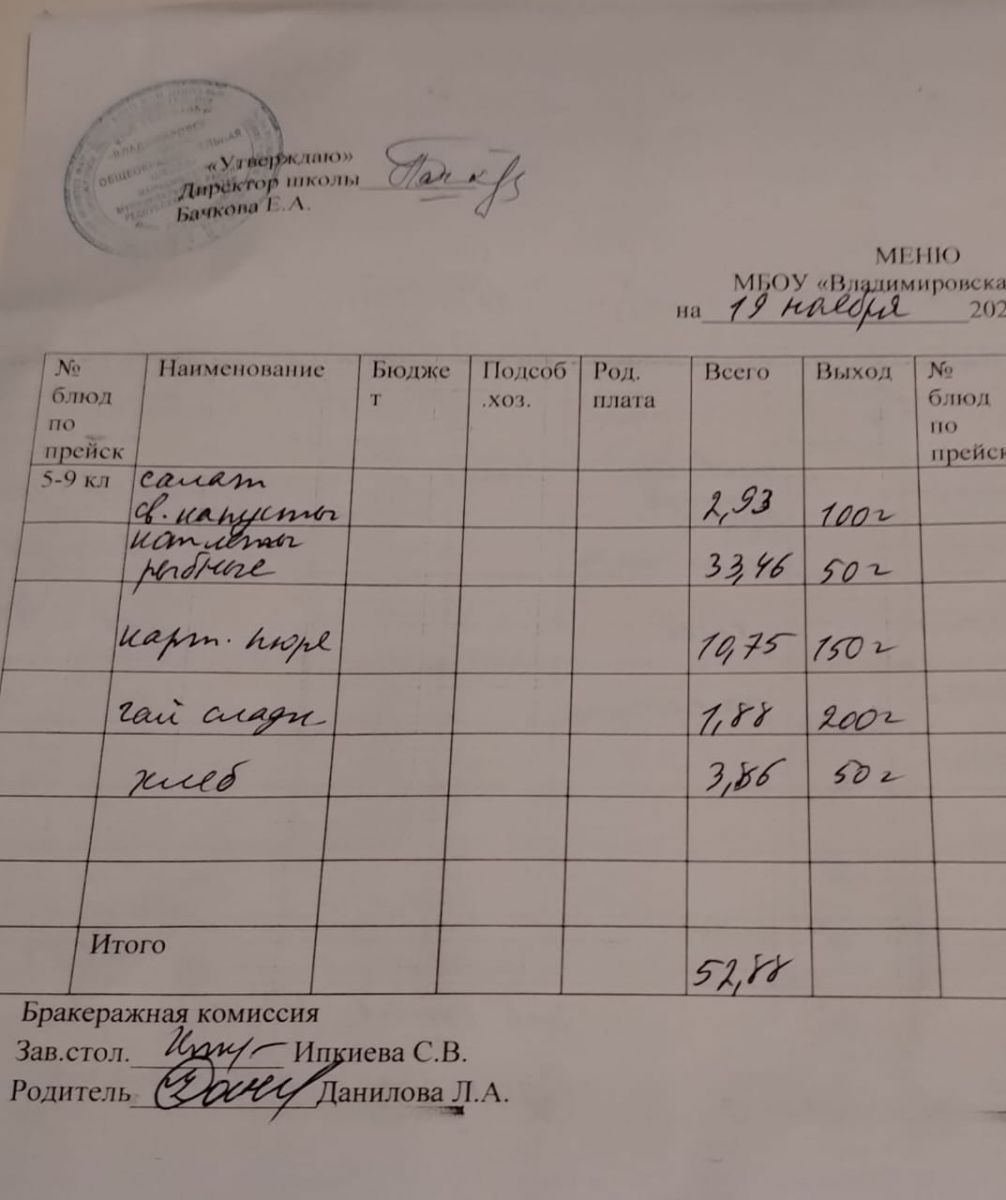 «ВЛАДИМИРОВСК
«Утверждаю»
Директор школы
Бачкова Е.А.
МЕНЮ
МБОУ «Владимировска
на 19 ноября 202
№ блюд по прейск Наименование Бюдже т Подсоб .хоз. Род. плата Всего Выход № блюд по прейск
5-9 кл салат св. капусты 2,93 100г
котлеты рыбные 33,46 50г
карт. пюре 10,75 150г
чай сладк 1,88 200г
хлеб 3,86 50г
Итого 52,88
Бракеражная комиссия
Зав.стол. Ипкиева С.В.
Родитель Данилова Л.А.